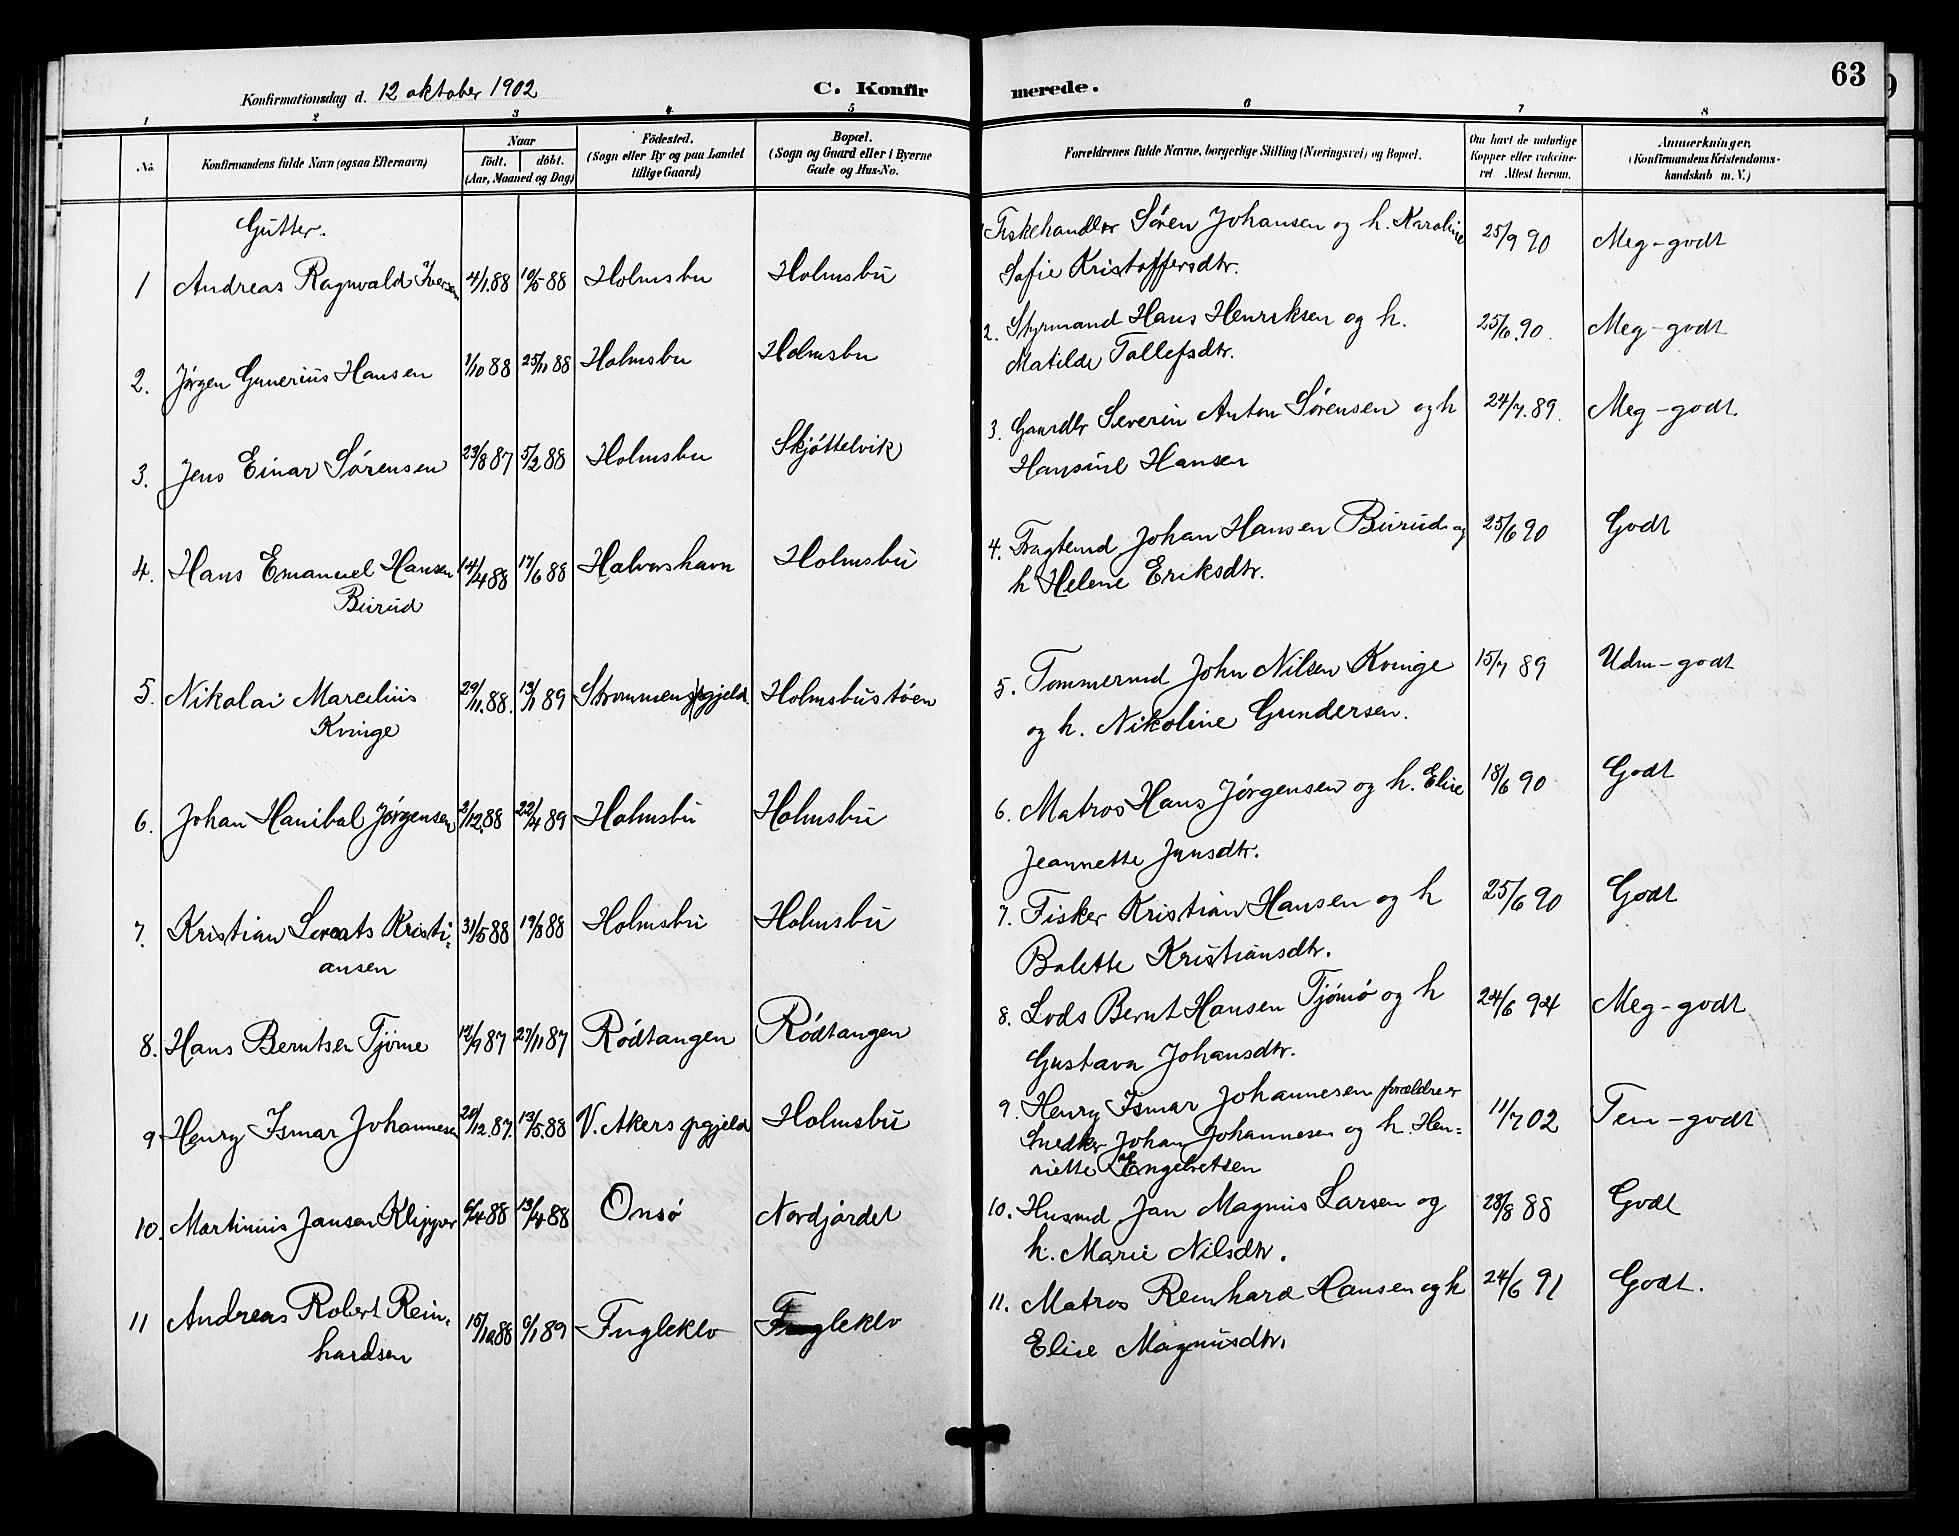 Konfirmationsdag d. 12 oktober 1902
C. Konfirmerede.
63
1 2 3 4 5 6 7 8
No.
Konfirmandens fulde Navn (ogsaa Efternavn)
Naar
födt. döbt.
(Aar, Maaned og Dag)
Födested.
(Sogn eller By og paa Landet
tillige Gaard)
Bopæl.
(Sogn og Gaard eller i Byerne
Gade og Hus-No.
Forældrenes fulde Navne, borgerlige Stilling (Næringsvei) og Bopæl.
Om havt de naturlige
Kopper eller vaccine-
ret Attest herom.
Anmærkninger.
(Konfirmandens Kristendoms-
kundskab m. V.)
Gutter.
1 Andreas Ragnvald Iversen 4/1.88 10/5 88 Holmsbu Holmsbu
Fiskehandler Sören Johansen og h. Karoline 25/9 90 Meg-godt
Sofie Kristoffersdtr.
2. Jörgen Gunerius Hansen 1/10 88 25/11 88 Holmsbu Holmsbu
2. Styrmand Hans Henriksen og h. 25/6.90. Meg-godt
Matilde Tollefsdtr.
3. Jens Einar Sörensen 23/8 87 5/2 88 Holmsbu Skjöttelvik
3. Gaardbr Severin Anton Sörensen og h 24/7.89. Meg-godt.
Hansine Hansen
4. Hans Emanuel Hansen 14/4 88 17/6 88 Halvorshavn Holmsbu
Burud
4. Fragtemd Johan Hansen Burud og 25/6 90 Godt
h Helene Eriksdtr.
5. Nikolai Marcelius 29/11.88. 13/1 89 Strommens pgjeld. Holmsbustöen
Kvinge
5. Tommermd John Nilsen Kvinge 15/7 89 Udm-godt
og h. Nikoline Gundersen.
6. Johan Hanibal Jörgensen 2/12.88 22/4 89 Holmsbu Holmsbu
6. Matros Hans Jörgensen og h. Elise 18/6 90 Godt
Jeannette Jensdtr.
7. Kristian Lorents Kristi- 31/5 88 19/8 88 Holmsbu Holmsbu
ansen
7. Fisker Kristian Hansen og h 25/6 90 Godt
Bolette Kristiansdtr.
8. Hans Berntsen Tjöme 12/9 87 27/11 87 Rödtangen Rödtangen
8. Lods Bernt Hansen Tjömö og h 24/6 94 Meg-godt
Gustava Johansdtr.
9 Henry Ismar Johannesen 20/12.87. 13/5.88 V. Akers pgjeld Holmsbu
9. Henry Ismar Johannesen forældre er 11/7 02 Tem-godt
Snedker Johan Johannesen og h. Hen-
riette Engebretsen
10. Martinius Jansen Klipper 6/4 88 13/4 88 Onsö Nordjordet
10. Husmd Jan Magnus Larsen og 28/8 88 Godt
h. Marie Nilsdtr.
11 Andreas Robert Rein- 15/10.88 6/1 89 Fugleklo Fugleklo
hardsen
11. Matros Reinhard Hansen og h 24/6 91 Godt.
Elise Magnusdtr.